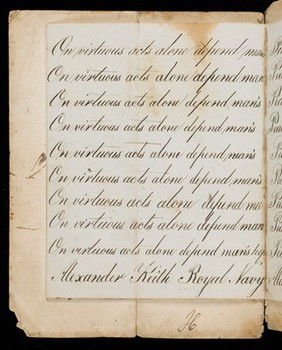 On virtuous acts alone depend mans
On virtuous acts alone depend man
On virtuous acts alone depend mans
On virtuous acts alone depend mans
On virtuous acts alone depend mans
On virtuous acts alone depend mans
On virtuous acts alone depend ma
On virtuous acts alone depend man
On virtuous acts alone depend man's
Alexander Keith Royal Navy